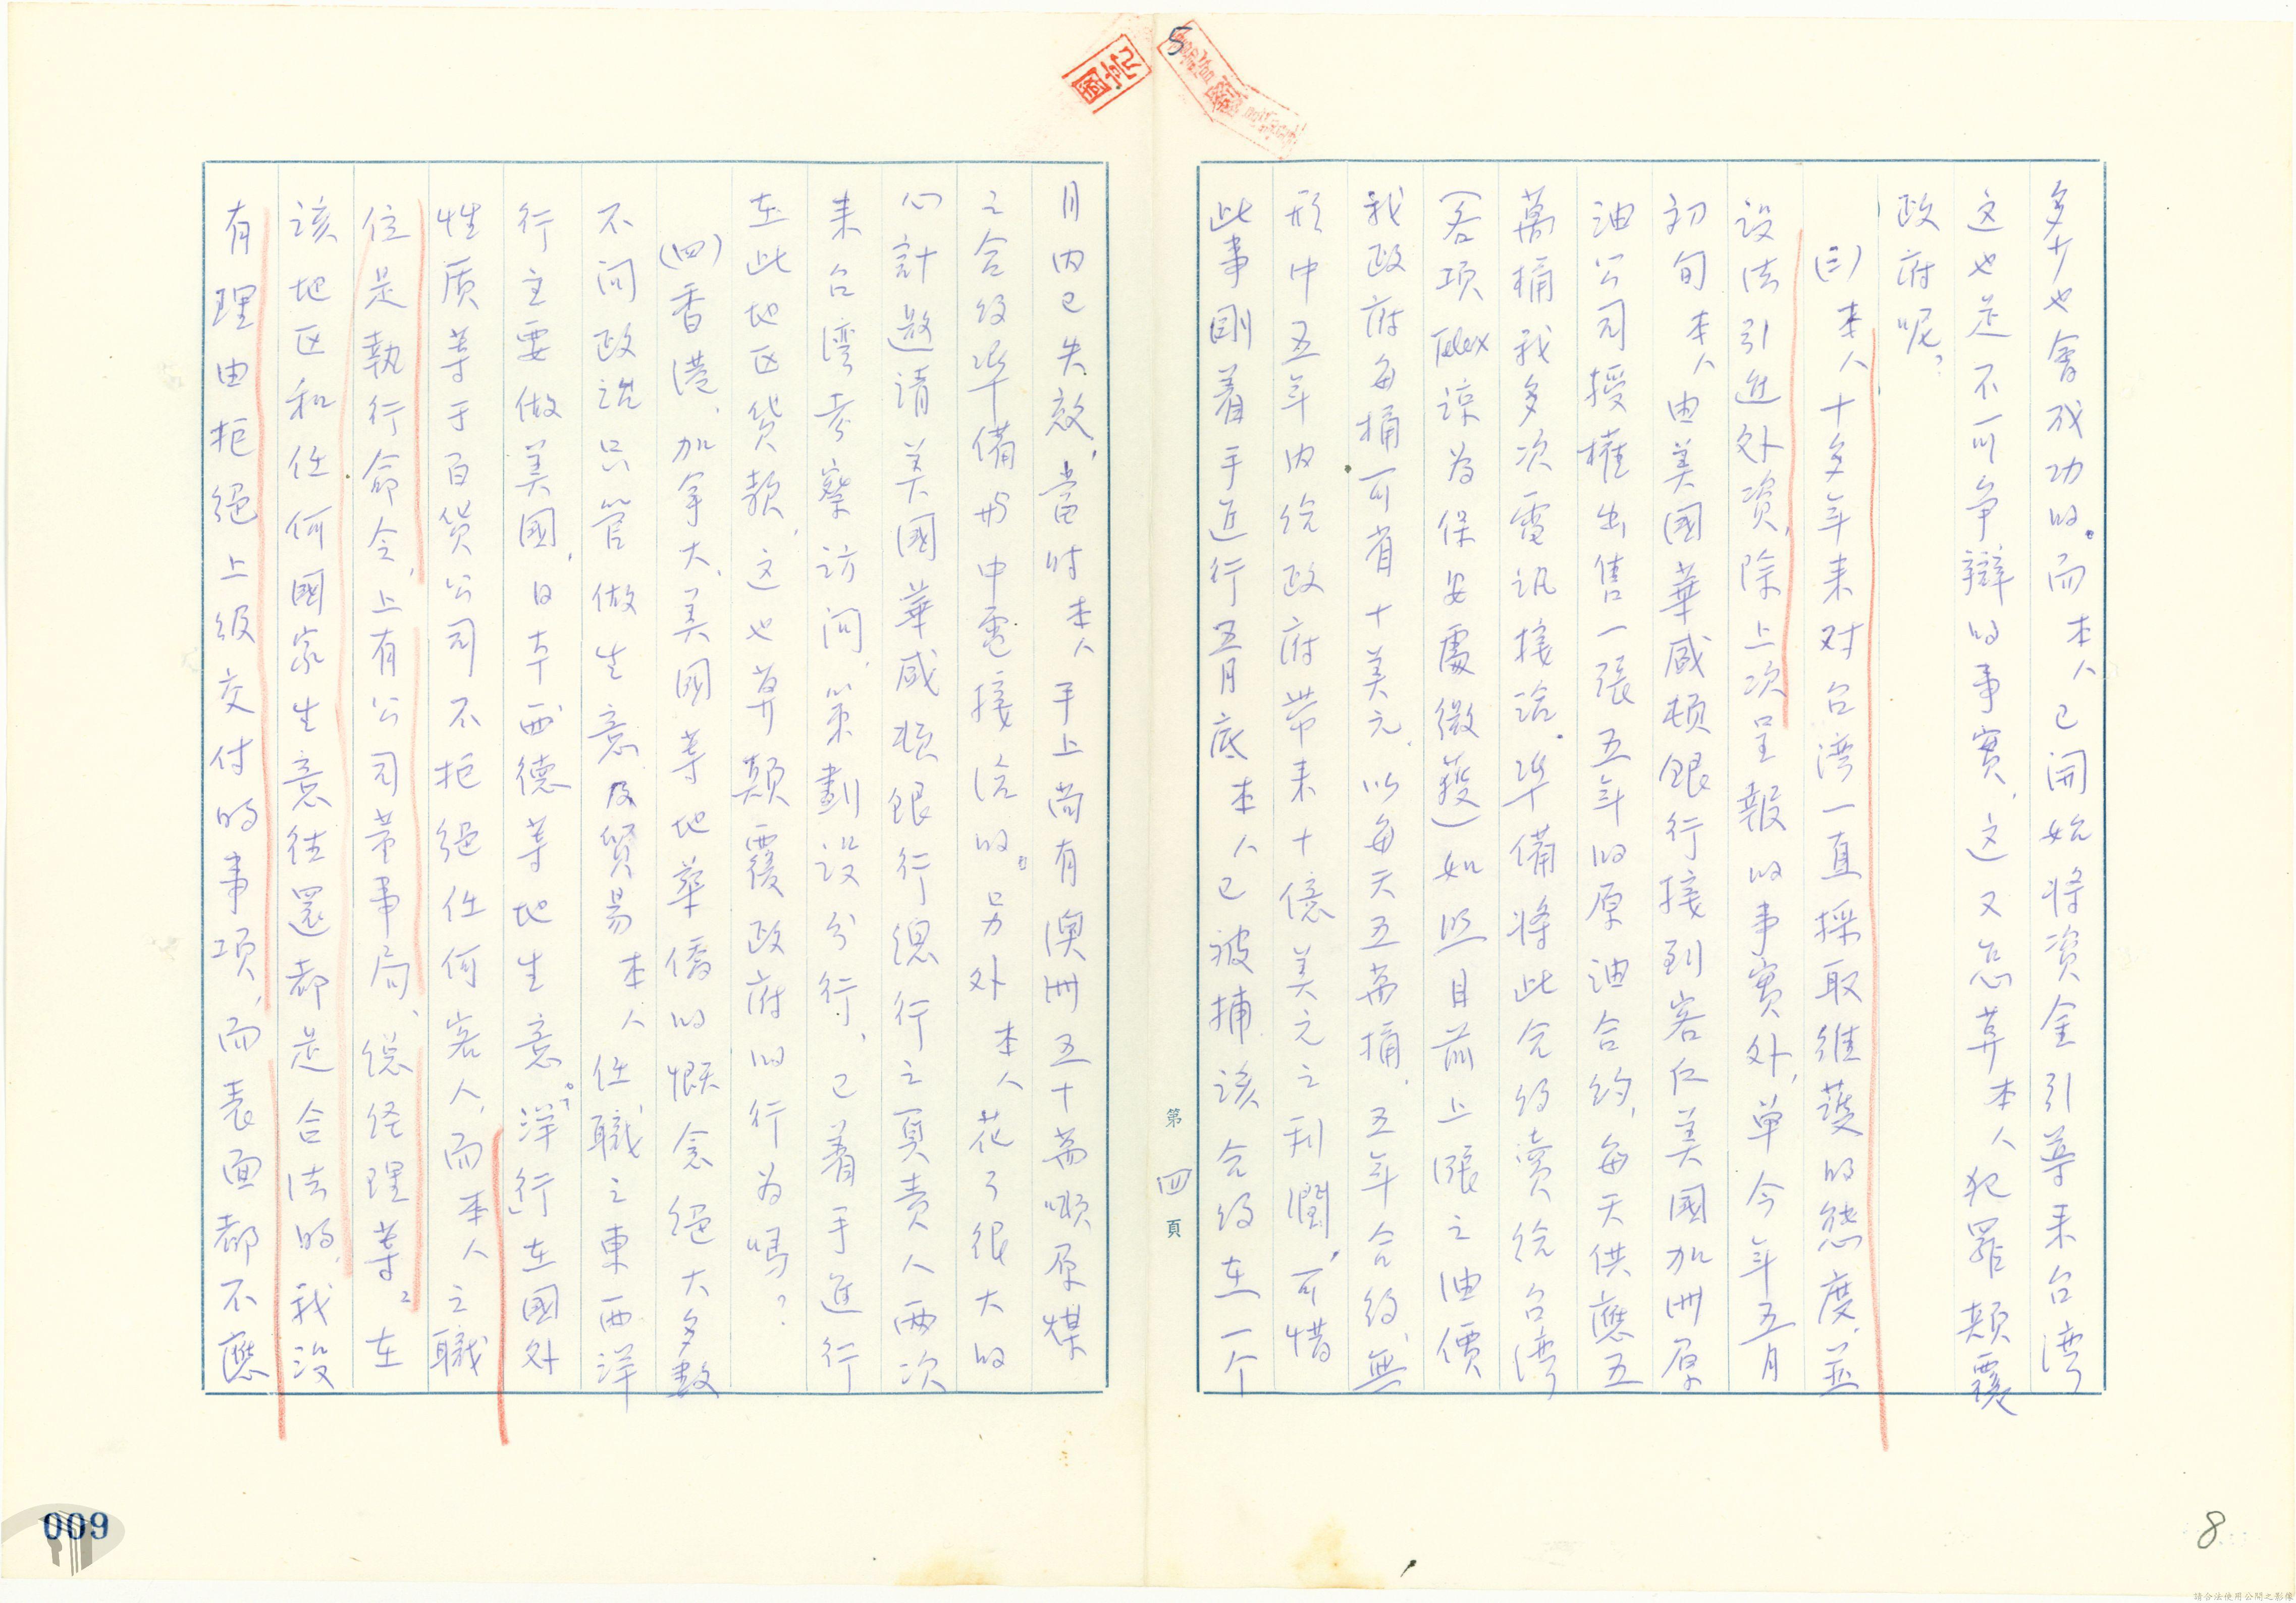 5
多少也會成功的。而本人已開始將资金引導来台湾
这也是不可争辯的事實，这又怎算本人犯罪颠覆
政府呢？
(三)本人十多年来对台湾一直採取維護的態度，並
设法引進外资，除上次呈報的事實外，单今年五月
初旬本人由美國華盛頓銀行接到客仁美國加洲原
油公司授權出售一張五年的原油合約，每天供應五
萬桶我多次電訊接洽。準備將此合约賣给台湾
(各項Telex諒为保安處徵獲)如照目前上漲之油價
我政府每桶可省十美元，以每天五萬桶，五年合约，無
形中五年内给政府带来十億美元之利潤，可惜
此事剛着手進行五月底本人已被捕，该合约在一个
第四頁
月内已失效，當时本人手上尚有澳洲五十萬噸原煤
之合约準備與中電接洽的。另外本人花了很大的
心計邀請美國華盛頓銀行總行之負責人两次
来台湾考察访问，策劃设分行，已着手進行
在此地区貸款，这也算颠覆政府的行为嗎？
(四)香港、加拿大、美國等地華僑的慨念絕大多數
不问政治只管做生意及貿易本人任職之東西洋
行主要做美國，日本西德等地生意。「洋行」在國外
性质等于百貨公司不拒絕任何客人，而本人之職
位是執行命令，上有公司董事局、總经理等。在
该地区和任何國家生意往還都是合法的，我没
有理由拒絕上级交付的事项，而表面都不應
009
8
請合法使用公開之影像